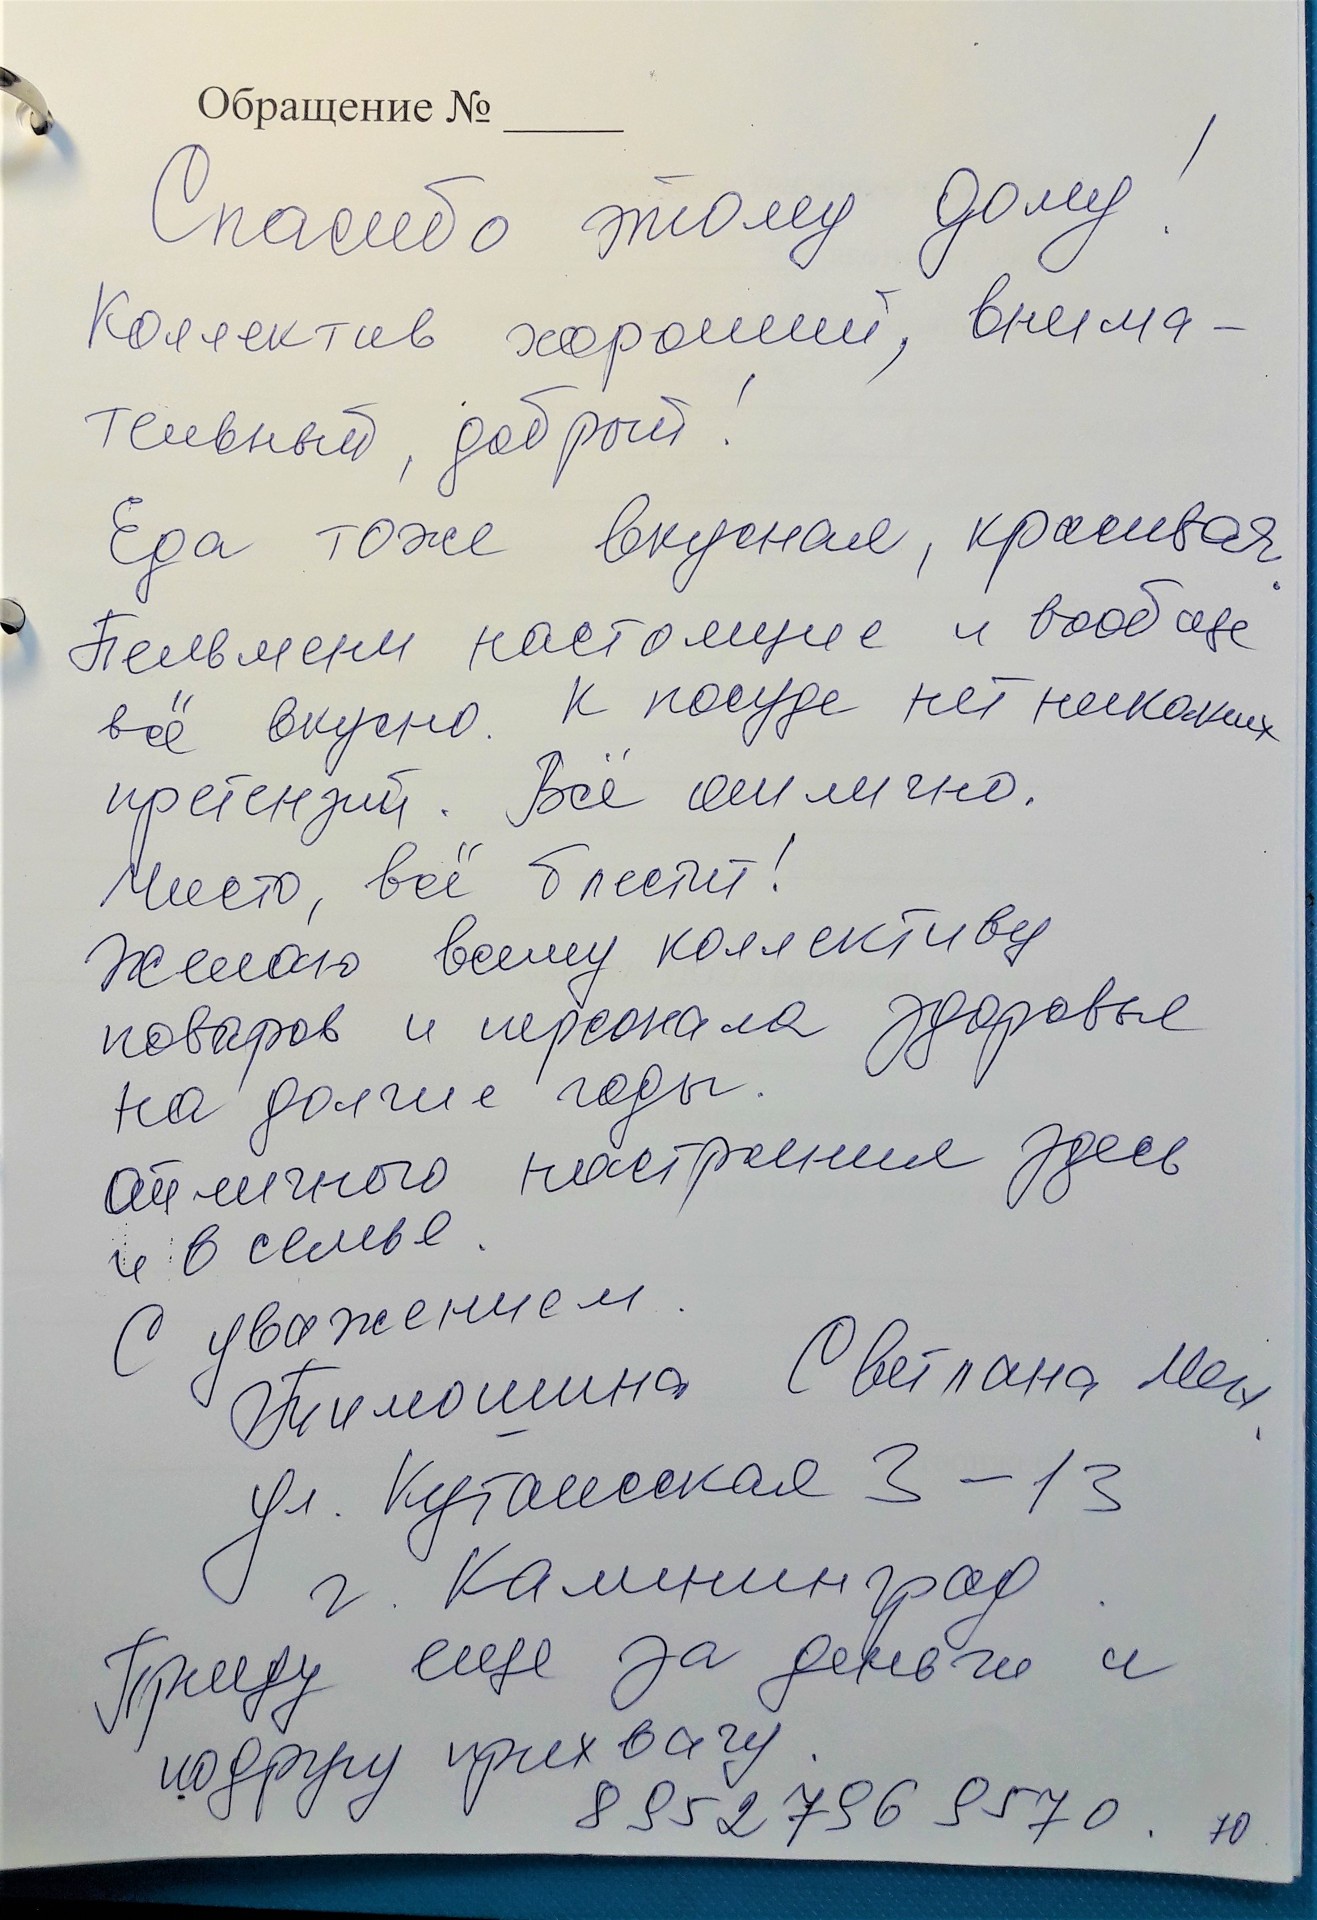 Обращение № _____
Спасибо этому дому!
Коллектив хороший, внима-
тельный, добрый!
Еда тоже вкусная, красивая.
Пельмени настоящие и вообще
всё вкусно. К посуде нет никаких
претензий. Всё отлично.
Чисто, всё блестит!
Желаю всему коллективу
поваров и персонала здоровья
на долгие годы.
Отличного настроения здесь
и в семье.
С уважением.
Тимошина Светлана
ул. Кутаисская 3-13
г. Калининград.
Приду еще за деньги и
подругу прихвачу.
89527969570. 70